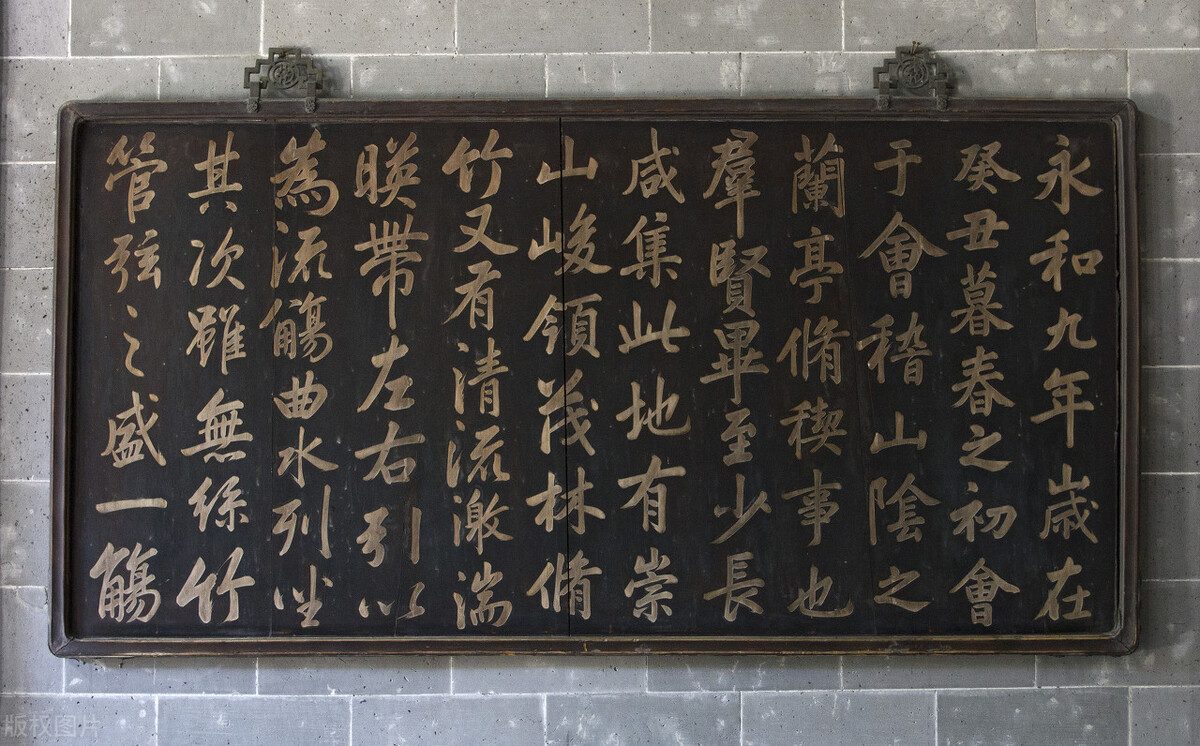 永和九年歲在
癸丑暮春之初會
于會稽山陰之
蘭亭脩稧事也
羣賢畢至少長
咸集此地有崇
山峻領茂林脩
竹又有清流激湍
暎帶左右引以
為流觴曲水列坐
其次雖無絲竹
管弦之盛一觴
版权图片